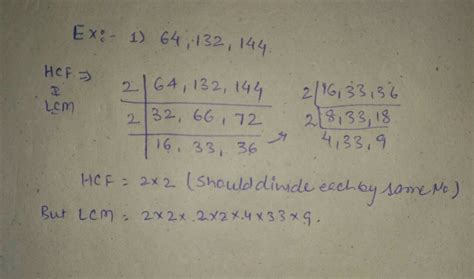 Ex:- 1) 64, 132, 144.
HCF ⇒
&
LCM
2 | 64, 132, 144
2 | 32, 66, 72
16, 33, 36 →
2 | 16, 33, 36
2 | 8, 33, 18
4, 33, 9
HCF = 2×2 (Should divide each by same No.)
But LCM = 2×2×2×2×4×33×9.